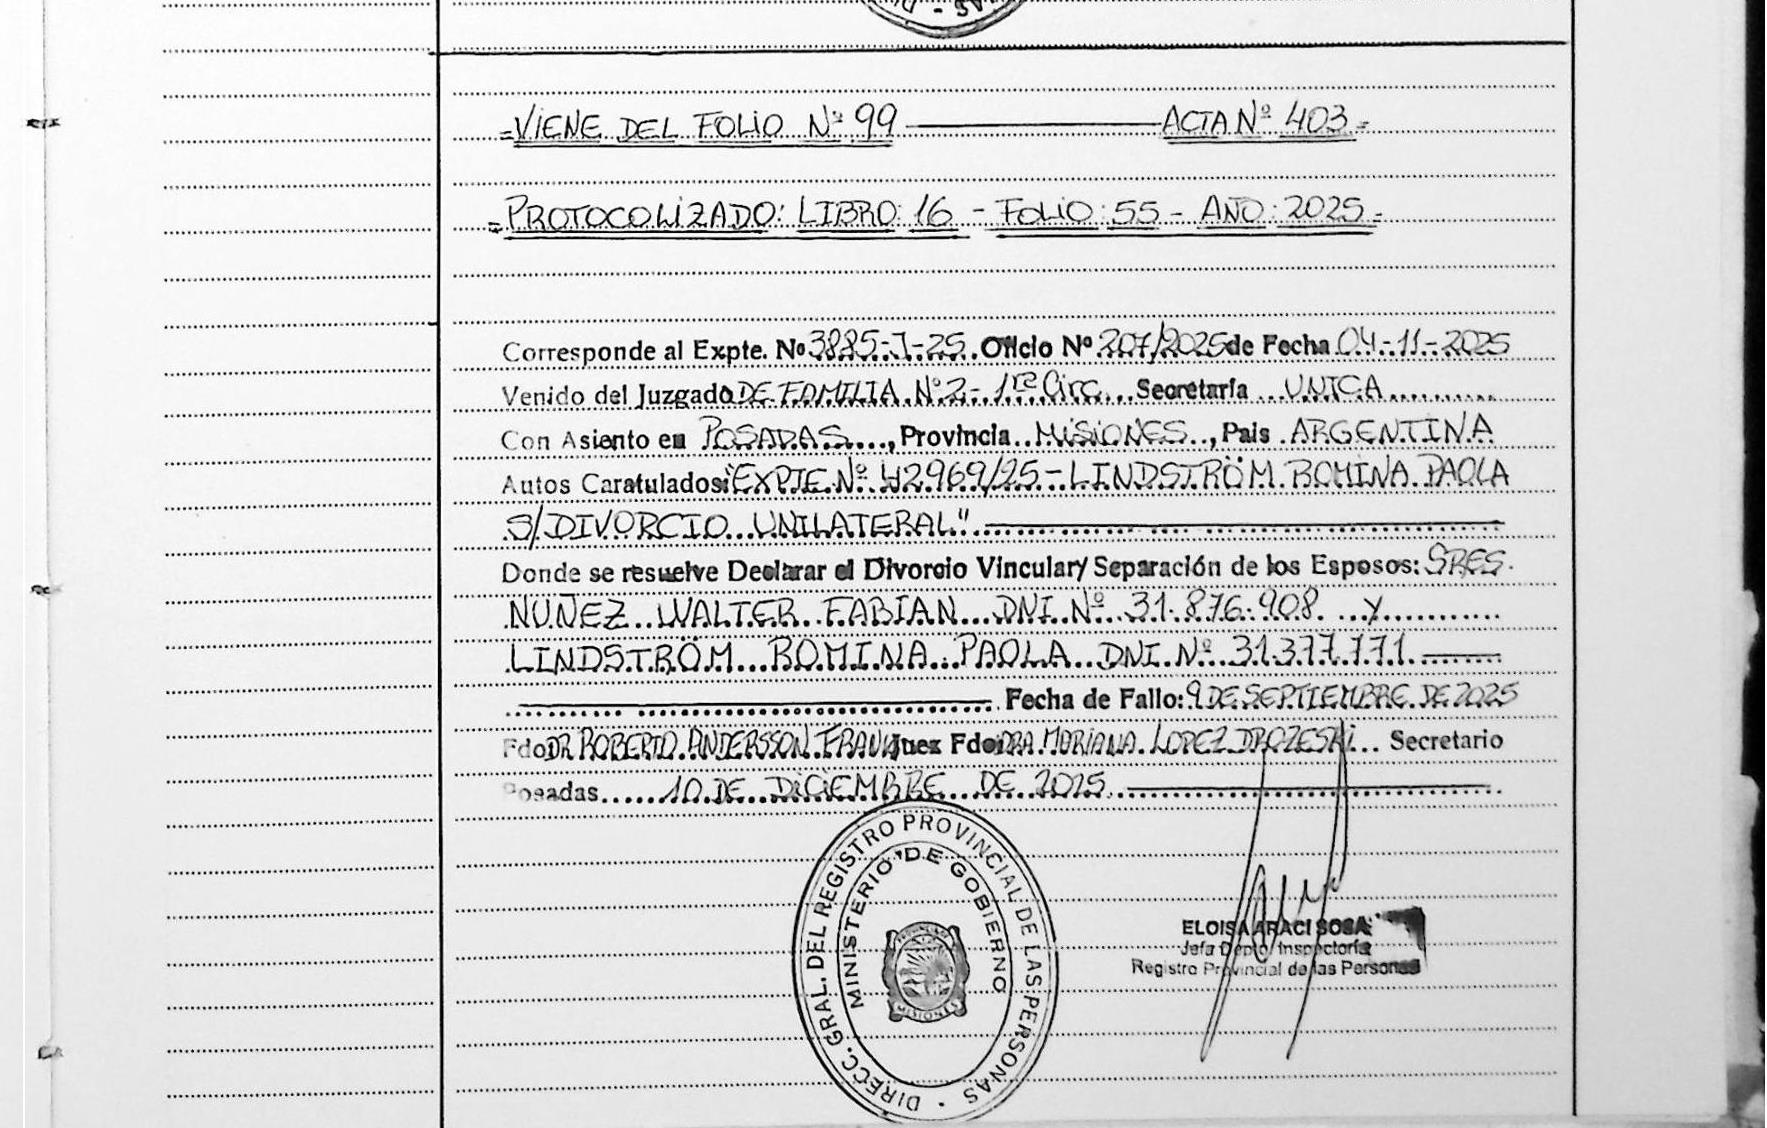 =VIENE DEL FOLIO Nº 99 ACTA Nº 403=
=PROTOCOLIZADO: LIBRO: 16 - FOLIO: 55 - AÑO: 2025=
Corresponde al Expte. Nº 3885-J-25 Oficio Nº 207/2025 de Fecha 04-11-2025
Venido del Juzgado DE FAMILIA Nº 2-1ra Circ. Secretaría UNICA
Con Asiento en POSADAS, Provincia MISIONES, Pais ARGENTINA
Autos Caratulados: "EXPTE Nº 42969/25-LINDSTRÖM ROMINA PAOLA
S/DIVORCIO UNILATERAL"
Donde se resuelve Declarar el Divorcio Vincular/ Separación de los Esposos: SRES.
NUÑEZ WALTER FABIAN DNI Nº 31.876.908 y
LINDSTRÖM ROMINA PAOLA DNI Nº 31.377.771
Fecha de Fallo: 9 DE SEPTIEMBRE DE 2025
Fdo DR ROBERTO ANDERSSON FRANK Juez Fdo: DRA. MARIANA LOPEZ DROZESKI Secretario
Posadas 10 DE DICIEMBRE DE 2025
DIRECC. GRAL. DEL REGISTRO PROVINCIAL DE LAS PERSONAS
MINISTERIO DE GOBIERNO
MISIONES
ELOISA ARACI SOSA
Jefa Depto Inspectoría
Registro Provincial de las Personas